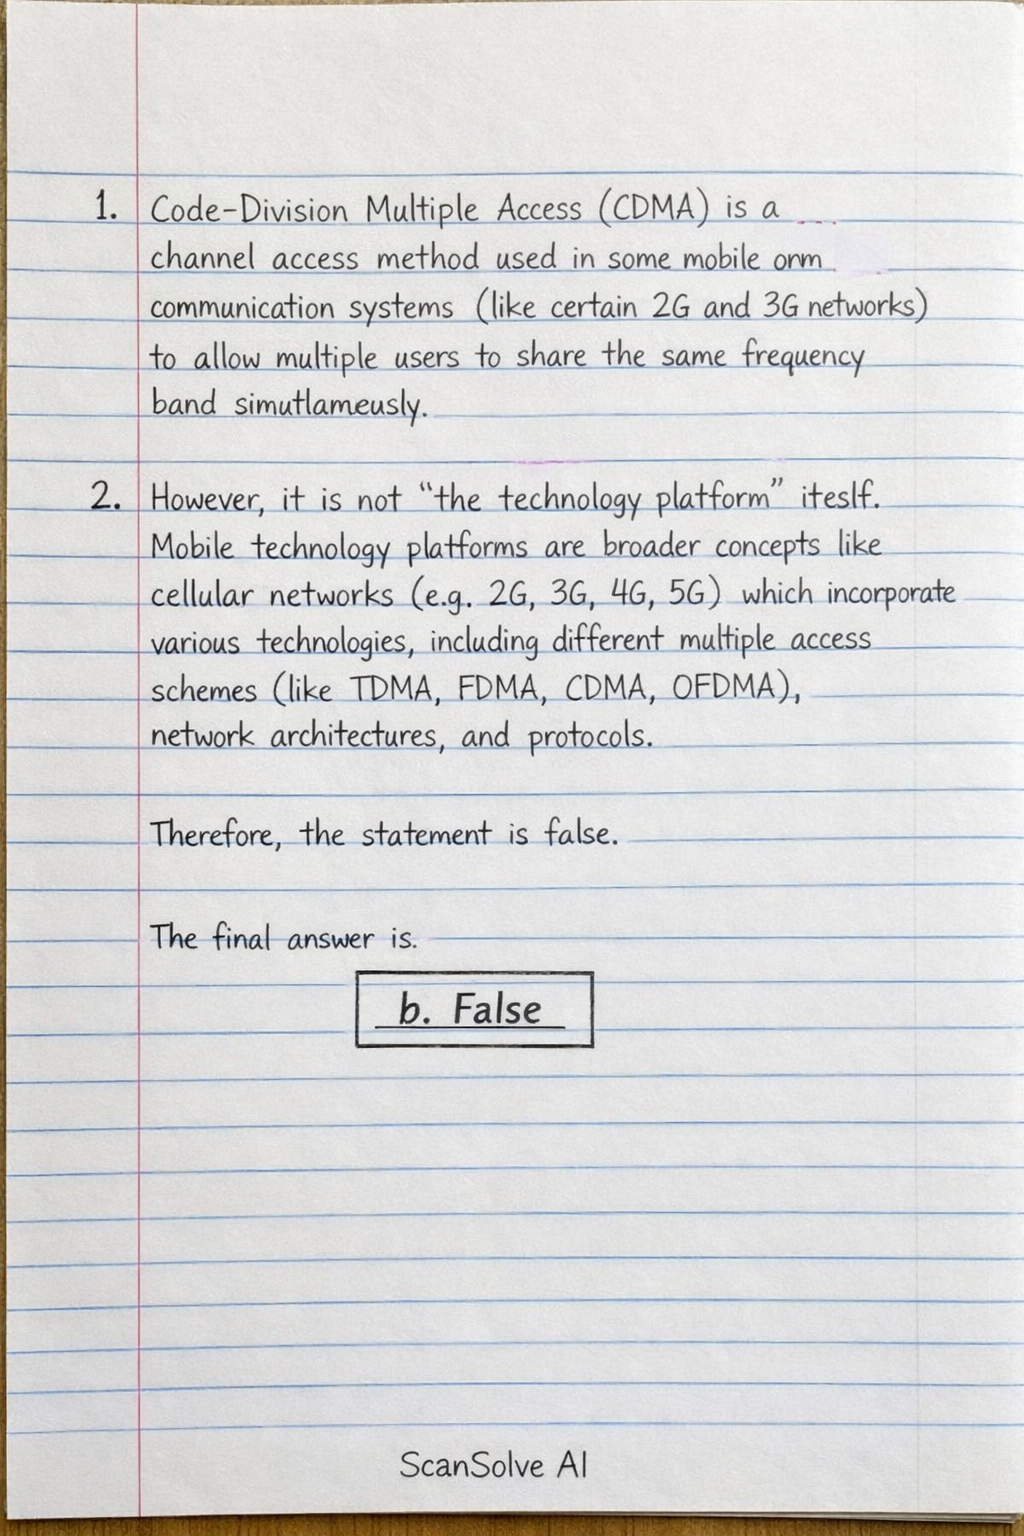 1. Code-Division Multiple Access (CDMA) is a
channel access method used in some mobile onm
communication systems (like certain 2G and 3G networks)
to allow multiple users to share the same frequency
band simutlameusly.
2. However, it is not “the technology platform” iteslf.
Mobile technology platforms are broader concepts like
cellular networks (e.g. 2G, 3G, 4G, 5G) which incorporate
various technologies, including different multiple access
schemes (like TDMA, FDMA, CDMA, OFDMA),
network architectures, and protocols.
Therefore, the statement is false.
The final answer is.
b. False
ScanSolve AI